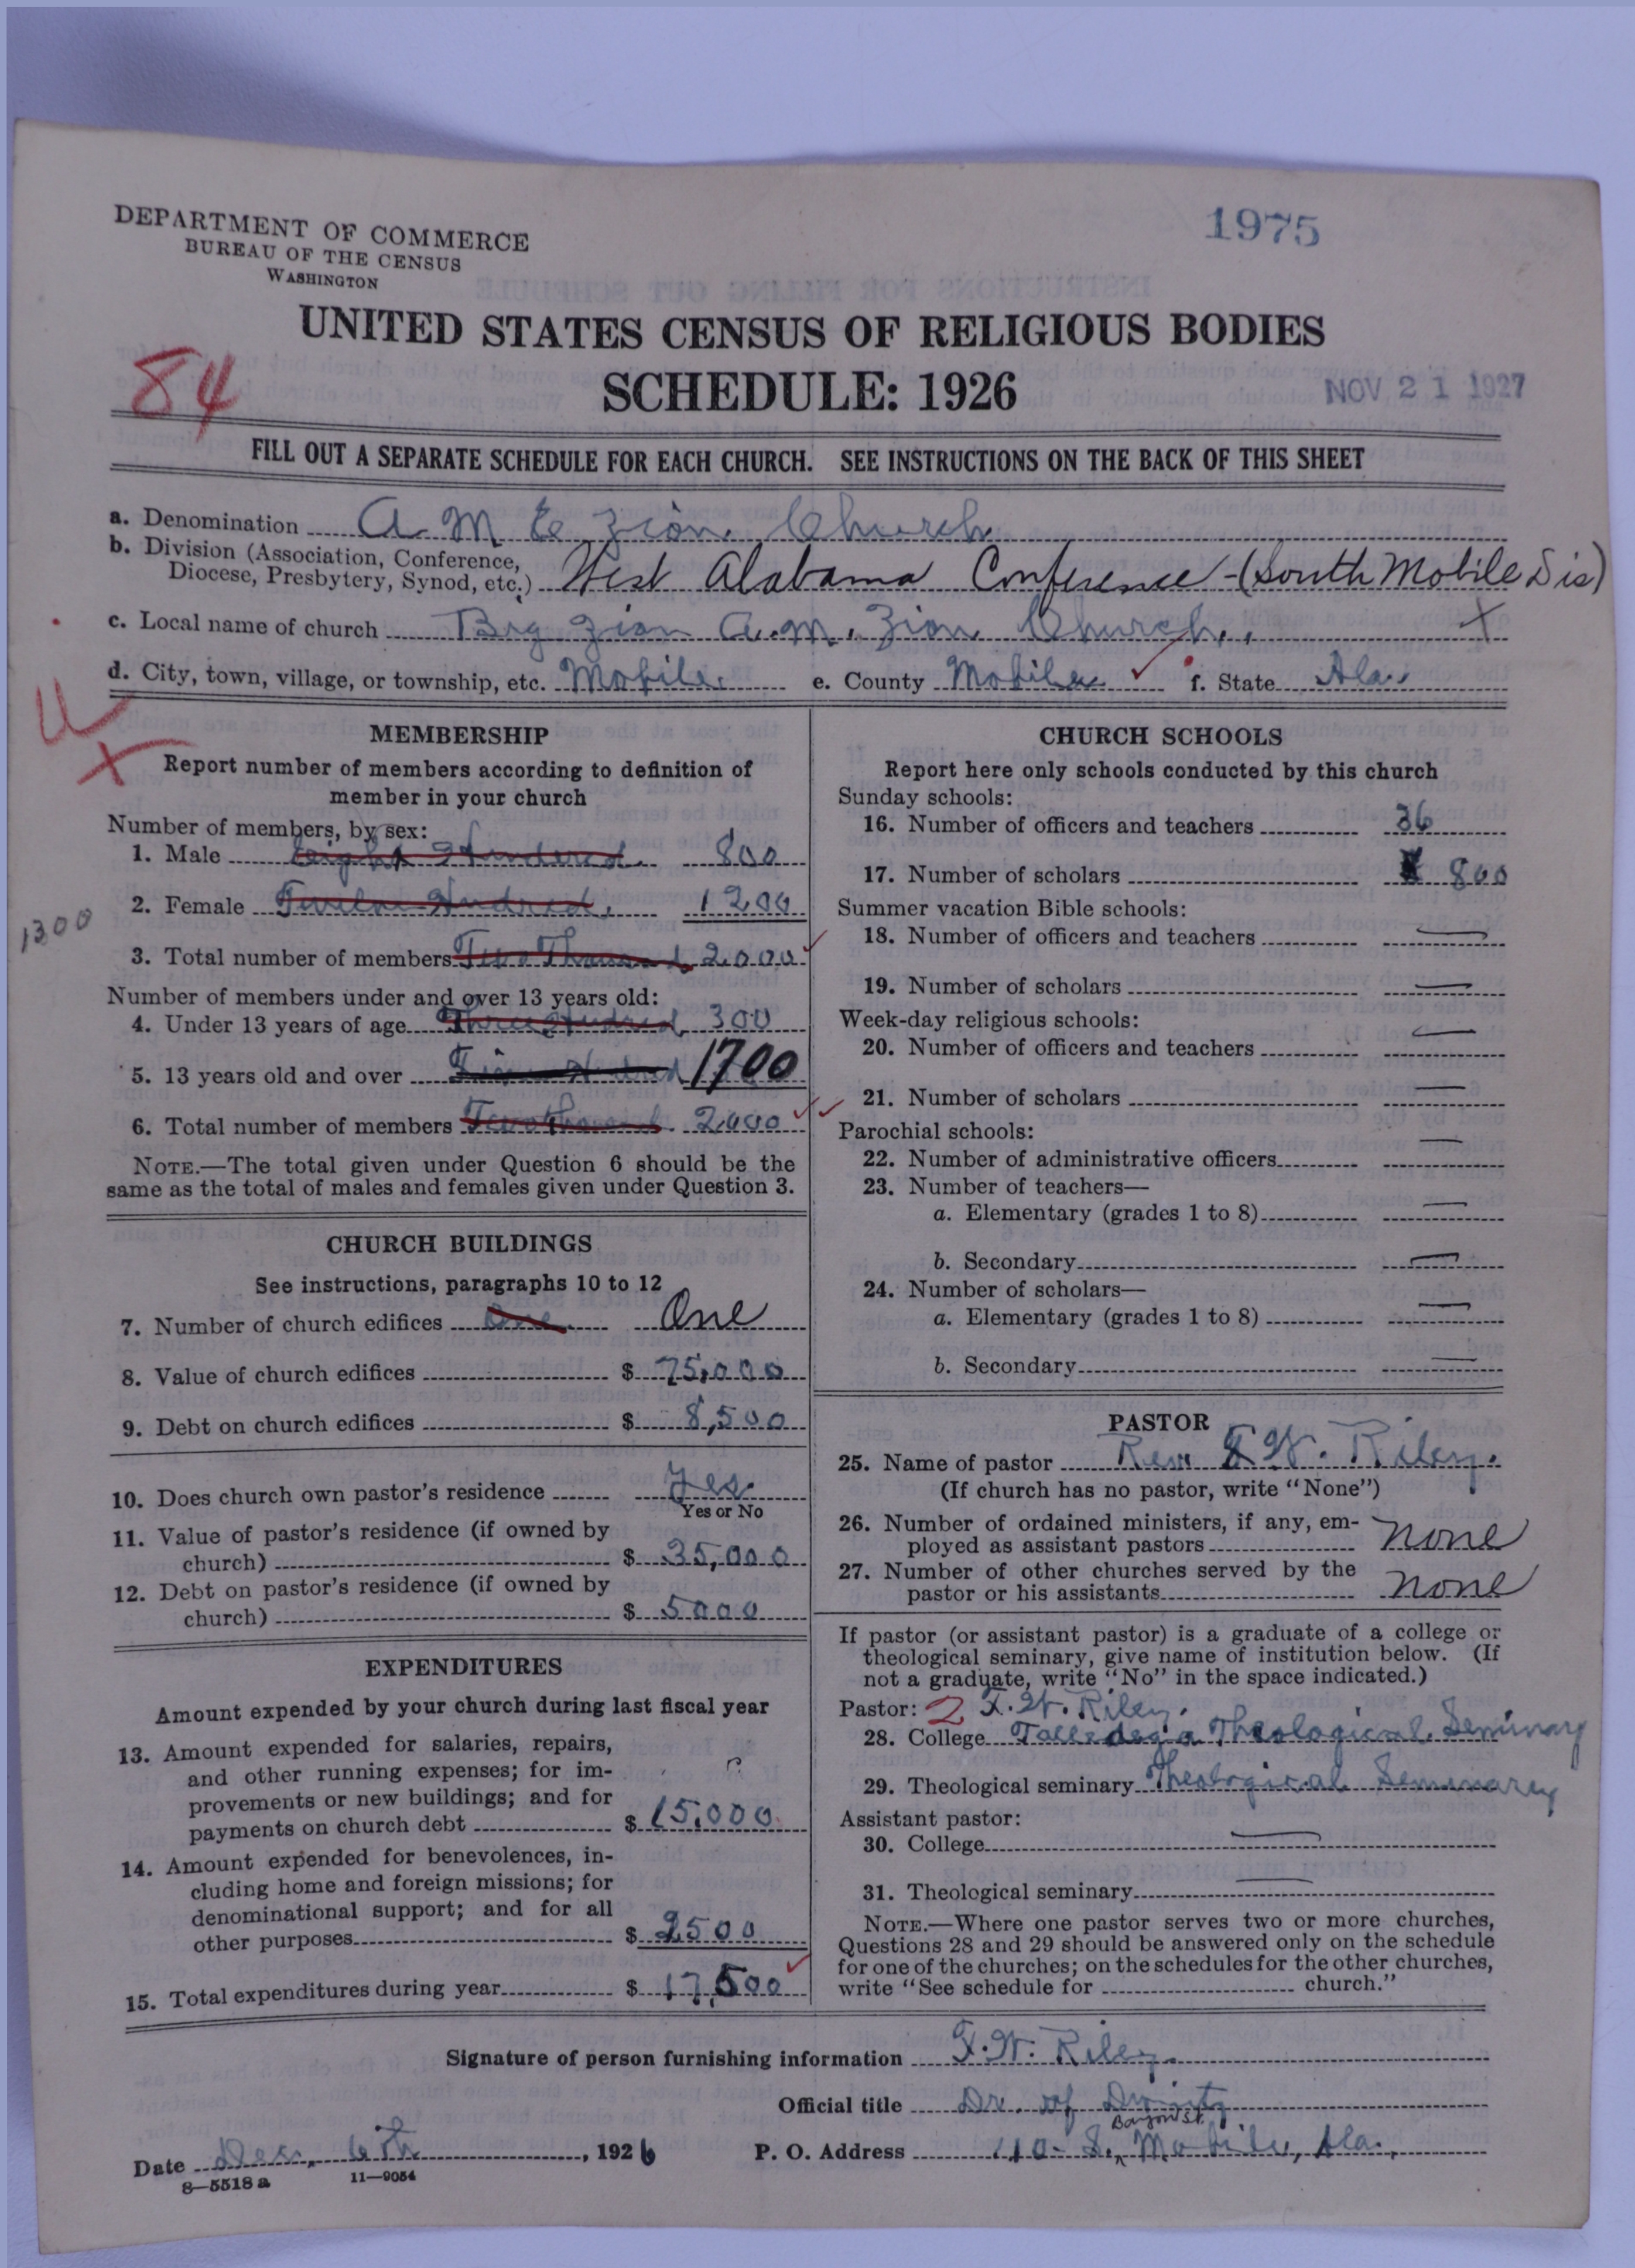 DEPARTMENT OF COMMERCE
BUREAU OF THE CENSUS
WASHINGTON
1975
UNITED STATES CENSUS OF RELIGIOUS BODIES
84
SCHEDULE: 1926
NOV 21 1927
FILL OUT A SEPARATE SCHEDULE FOR EACH CHURCH. SEE INSTRUCTIONS ON THE BACK OF THIS SHEET
a. Denomination A M E Zion Church
b. Division (Association, Conference,
Diocese, Presbytery, Synod, etc.) West Alabama Conference - (South Mobile Dis)
c. Local name of church Big Zion A. M. Zion Church. X
d. City, town, village, or township, etc. Mobile. e. County Mobile f. State Ala.
MEMBERSHIP
Report number of members according to definition of
member in your church
Number of members, by sex:
1. Male Eight Hundred 800
2. Female Twelve Hundred. 1200
1300
3. Total number of members Two Thousand 2,000
Number of members under and over 13 years old:
4. Under 13 years of age Three Hundred 300
5. 13 years old and over 1700
6. Total number of members Two Thousand 2,000
NOTE.—The total given under Question 6 should be the
same as the total of males and females given under Question 3.
CHURCH BUILDINGS
See instructions, paragraphs 10 to 12
7. Number of church edifices One One
8. Value of church edifices $ 75,000
9. Debt on church edifices $ 8,500
10. Does church own pastor's residence Yes.
Yes or No
11. Value of pastor's residence (if owned by
church) $ 35,000
12. Debt on pastor's residence (if owned by
church) $ 5000
EXPENDITURES
Amount expended by your church during last fiscal year
13. Amount expended for salaries, repairs,
and other running expenses; for im-
provements or new buildings; and for
payments on church debt $ 15,000
14. Amount expended for benevolences, in-
cluding home and foreign missions; for
denominational support; and for all
other purposes $ 2500
15. Total expenditures during year $ 17,500
CHURCH SCHOOLS
Report here only schools conducted by this church
Sunday schools:
16. Number of officers and teachers 36
17. Number of scholars 800
Summer vacation Bible schools:
18. Number of officers and teachers —
19. Number of scholars —
Week-day religious schools:
20. Number of officers and teachers —
21. Number of scholars —
Parochial schools:
22. Number of administrative officers —
23. Number of teachers—
a. Elementary (grades 1 to 8) —
b. Secondary —
24. Number of scholars—
a. Elementary (grades 1 to 8) —
b. Secondary —
PASTOR
25. Name of pastor Rev. F. W. Riley.
(If church has no pastor, write "None")
26. Number of ordained ministers, if any, em-
ployed as assistant pastors none
27. Number of other churches served by the
pastor or his assistants none
If pastor (or assistant pastor) is a graduate of a college or
theological seminary, give name of institution below. (If
not a graduate, write "No" in the space indicated.)
Pastor: 2 F. W. Riley.
28. College Talledega Theological Seminary
29. Theological seminary Theological Seminarey
Assistant pastor:
30. College —
31. Theological seminary —
NOTE.—Where one pastor serves two or more churches,
Questions 28 and 29 should be answered only on the schedule
for one of the churches; on the schedules for the other churches,
write "See schedule for church."
Signature of person furnishing information F. W. Riley.
Official title Dr. of Divinity
Bayou St.
Date Dec. 6th, 1926 P. O. Address 110 - S. Mobile, Ala.
8—5518 a 11—9054